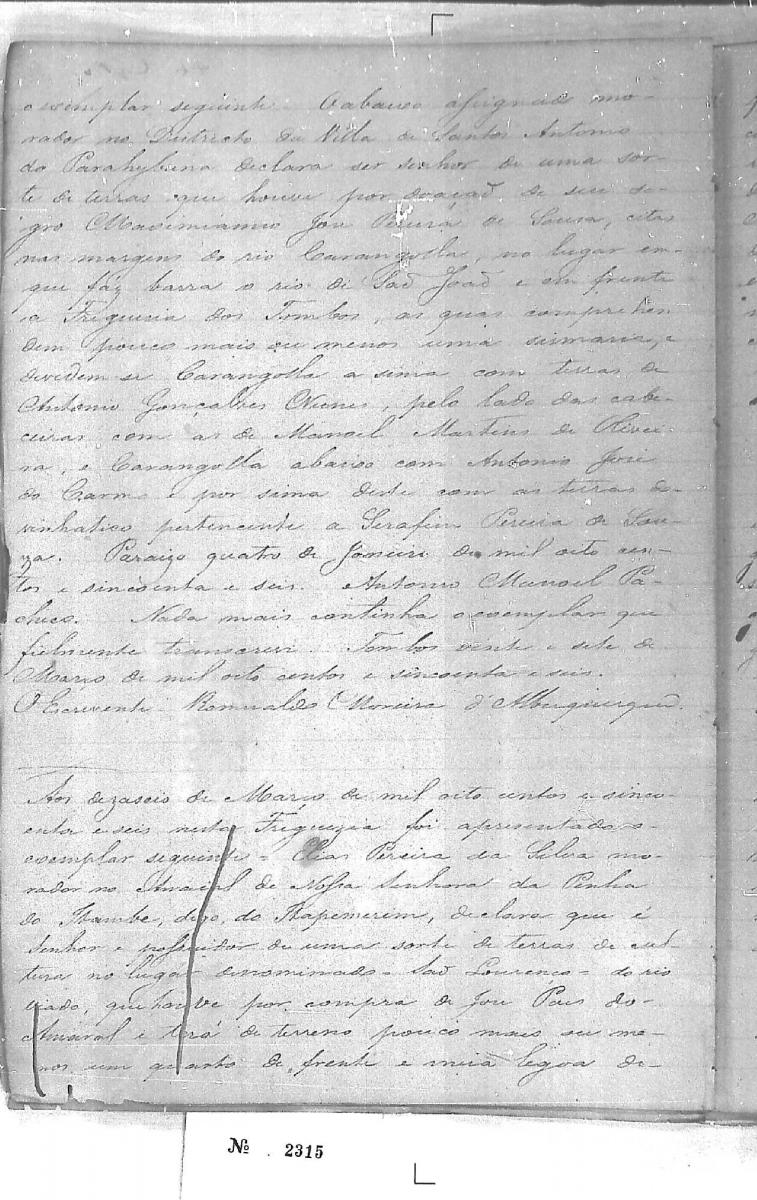 o exemplar seguinte = O abaixo assignado mo-
rador no Districto da Villa de Santo Antonio
do Parahybuna declara ser senhor de uma sor-
te de terras que houve por doação de seu so-
gro Maximiamno José Pereira de Sousa, citas
nas margens do rio Carangolla, no lugar em
que faz barra o rio de São João e em frente
a Freguesia dos Tombos, as quaes comprehen
dem pouco mais ou menos uma sismaria, e
devidem se Carangolla a sima com terras de
Antonio Gonçalves Nunes, pelo lado das cabe-
ceiras com as de Manoel Martins de Olivei-
ra, e Carangolla abaixo com Antonio José
do Carmo e por sima deste com as terras do
vinhatico pertencente a Serafim Pereira de Sou-
za. Paraizo quatro de Janeiro de mil oito cen-
tos e sincoenta e seis. Antonio Manoel Pa-
checo. Nada mais continha o exemplar que
fielmente transcrevi. Tombos vinte e sete de
Março de mil oito centos e sincoenta e seis.
O Escrevente Romualdo Moreira d'Albuquerque.
Aos dezaseis de Março de mil oito centos e sinco-
enta e seis nesta Freguezia foi apresentado o
exemplar seguinte = Elias Pereira da Silva mo-
rador no Arraial de Nossa Senhora da Penha
do Itambe, digo, do Itapemerim, declara que é
Senhor e possuidor de uma sorte de terras de cul-
tura no lugar denominado = São Lourenço = do rio
que houve por compra de José Paes do
Amaral e terá de terreno pouco mais ou me-
nos um quarto de frente e meia legoa de
Nº 2315